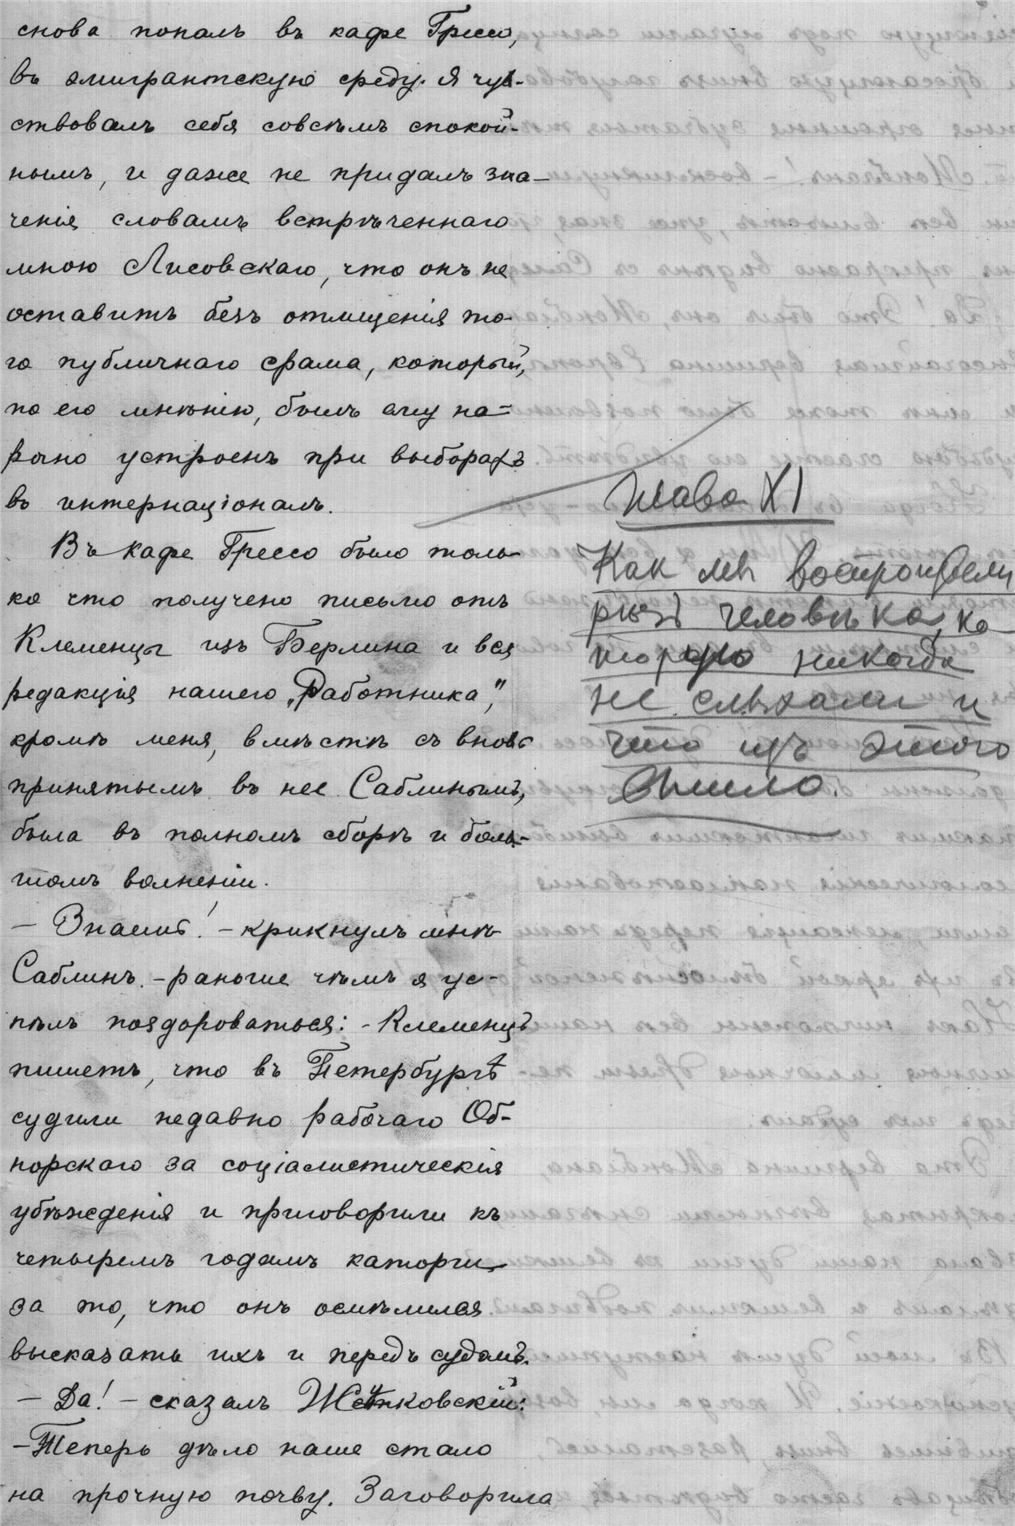 снова попалъ въ кафе Грессо,
въ эмигрантскую среду. Я чув-
ствовалъ себя совсѣмъ спокой-
нымъ, и даже не придалъ зна-
ченія словамъ встрѣченнаго
мною Лисовскаго, что онъ не
оставитъ безъ отмщенія то-
го публичнаго срама, который,
по его мнѣнію, былъ ему на-
рочно устроенъ при выборахъ
въ интернаціоналъ.
Въ кафе Грессо было толь-
ко что получено письмо отъ
Клеменцы изъ Берлина и вся
редакція нашего „Работника",
кромѣ меня, вмѣстѣ съ вновь
принятымъ въ нее Саблинымъ,
была въ полномъ сборѣ и боль-
шомъ волненіи.
— Знаешь! — крикнулъ мнѣ
Саблинъ. — раньше чѣмъ я ус-
пѣлъ поздороваться: — Клеменцъ
пишетъ, что въ Петербургѣ
судили недавно рабочаго Об-
норскаго за соціалистическія
убѣжденія и приговорили къ
четыремъ годамъ каторги
за то, что онъ осмѣлился
высказать ихъ и передъ судомъ.
— Да! — сказалъ Жуковскій:
— Теперь дѣло наше стало
на прочную почву. Заговорила
Глава XI
Как мы
рѣзъ человѣка, ко
тораго никогда
не слыхали и
что изъ этого
вышло.